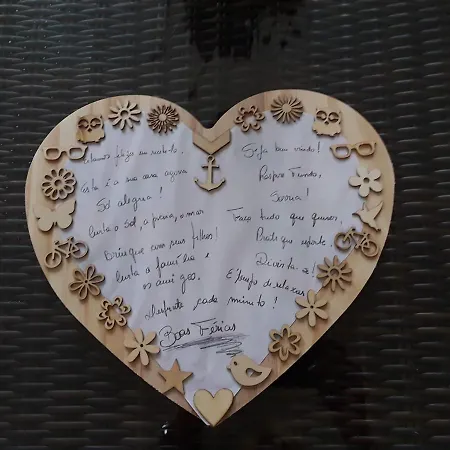 Estamos felizes em recebê-lo.
Esta é a sua casa agora
Só alegria!
Curta o Sol, a praia, o mar
Brinque com seus filhos!
Curta a família e
os amigos.
Desfrute cada minuto!
Boas Férias
Seja bem vindo!
Respire Fundo,
Sorria!
Faça tudo que quiser,
Pratique esporte.
Divirta-se!
É tempo de relaxar